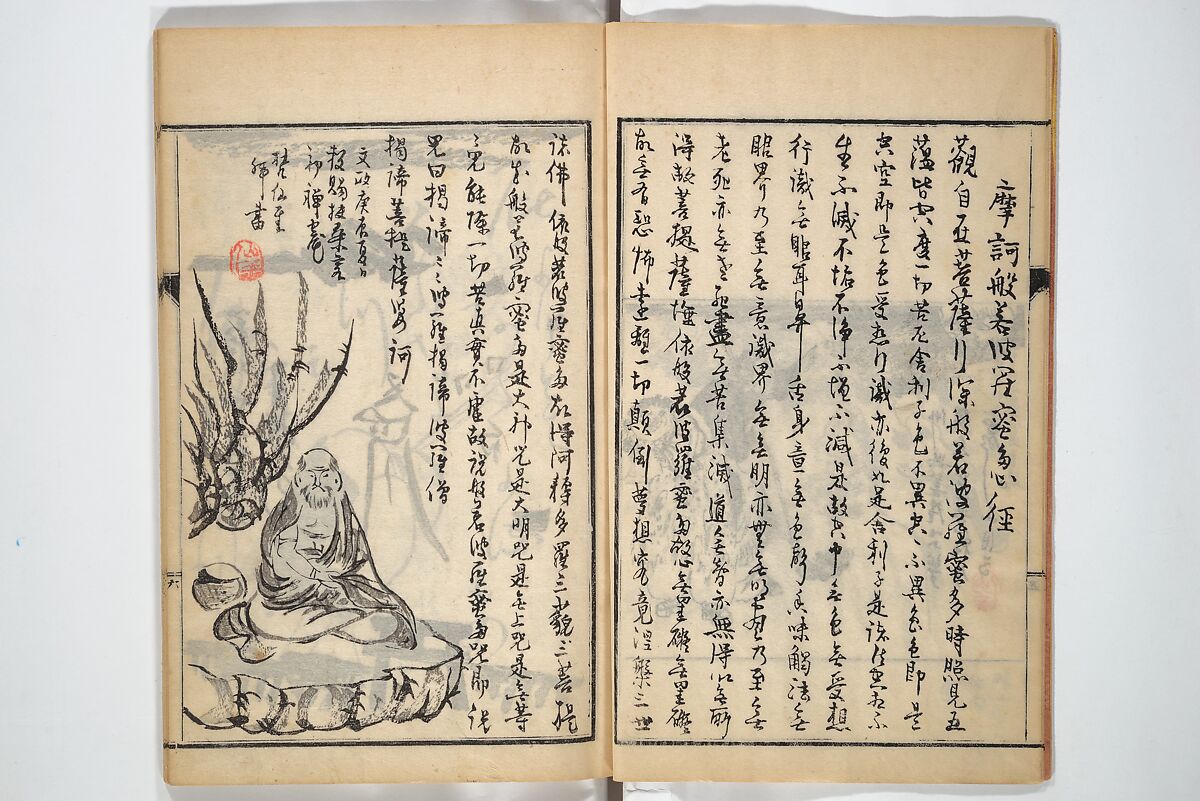 摩訶般若波羅蜜多心經
觀自在菩薩行深般若波羅蜜多時照見五
蘊皆空度一切苦厄舍利子色不異空々不異色色即是
空空即是色受想行識亦復如是舍利子是諸法空相不
生不滅不垢不淨不增不減是故空中無色無受想
行識無眼耳鼻舌身意無色聲香味觸法無
眼界乃至無意識界無無明亦無無明盡乃至無
老死亦無老死盡無苦集滅道無智亦無得以無所
得故菩提薩埵依般若波羅蜜多故心無罣礙無罣礙
故無有恐怖遠離一切顛倒夢想究竟涅槃三世
諸佛依般若波羅蜜多故得阿耨多羅三藐三菩提
故知般若波羅蜜多是大神咒是大明咒是無上咒是無等
々咒能除一切苦真實不虛故説般若波羅蜜多咒即説
咒曰揭諦々々波羅揭諦波羅僧
揭諦菩提薩婆訶
文政庚辰夏日
六